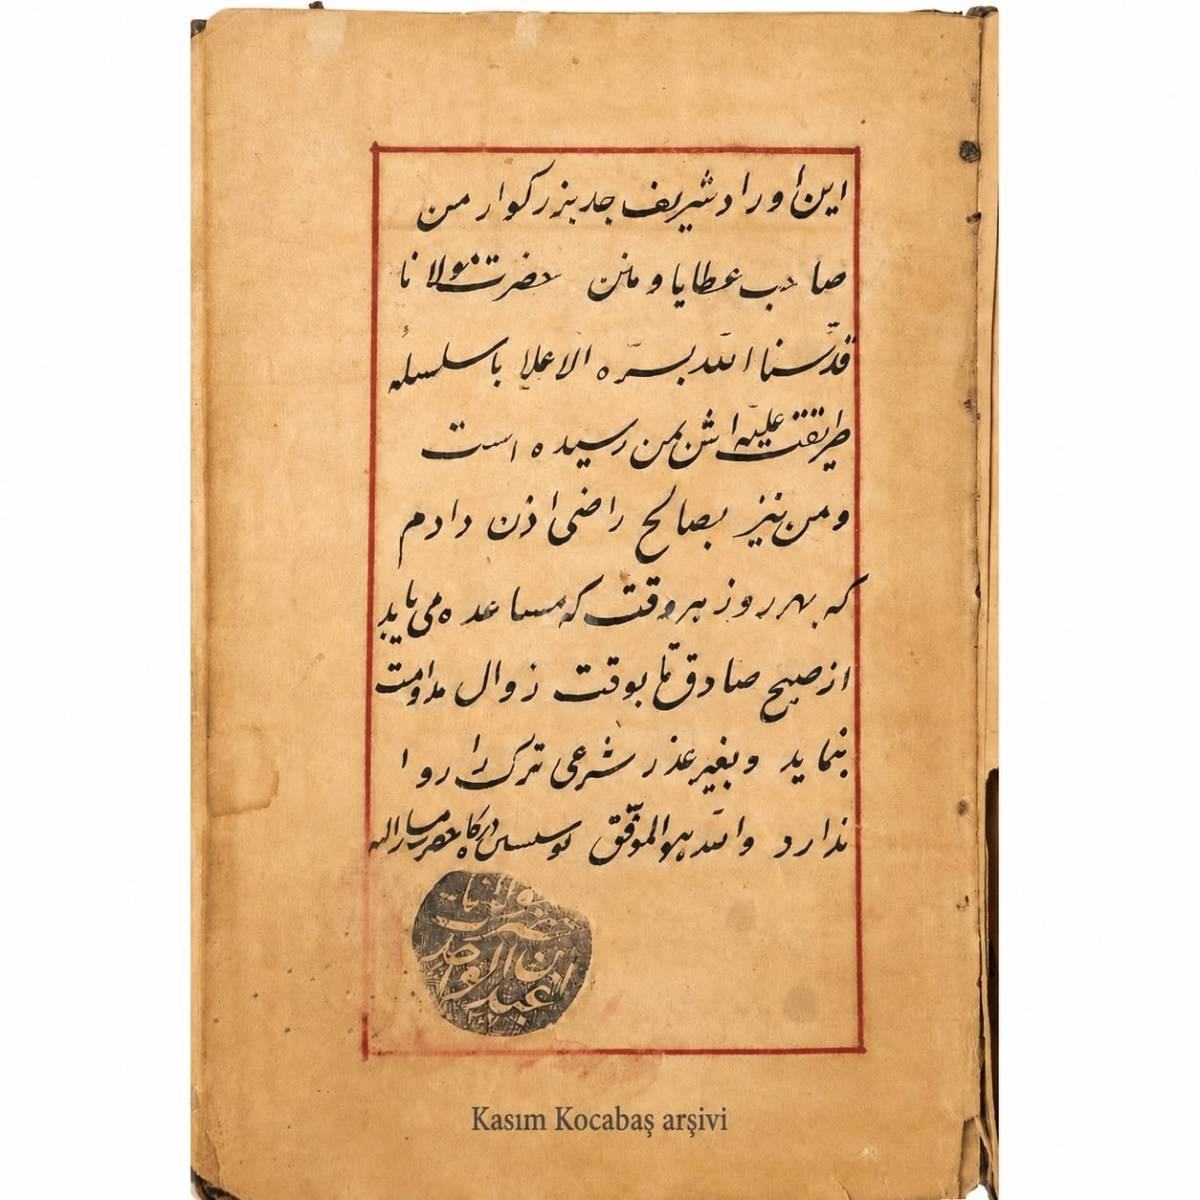 این اوراد شریف جد بزرکوار من
صاحب عطایا و منن حضرت مولانا
قدّسنا الله بسرّه الاعلا با سلسلهٔ
طریقت علیّه اش بمن رسیده است
و من نیز بصالح راضی اذن دادم
که بهر روز هر وقت که مساعده می یابد
از صبح صادق تا بوقت زوال مداومت
بنماید و بغیر عذر شرعی ترک را روا
ندارد والله هو الموفّق
عبد الواحد
ابن
Kasım Kocabaş arşivi